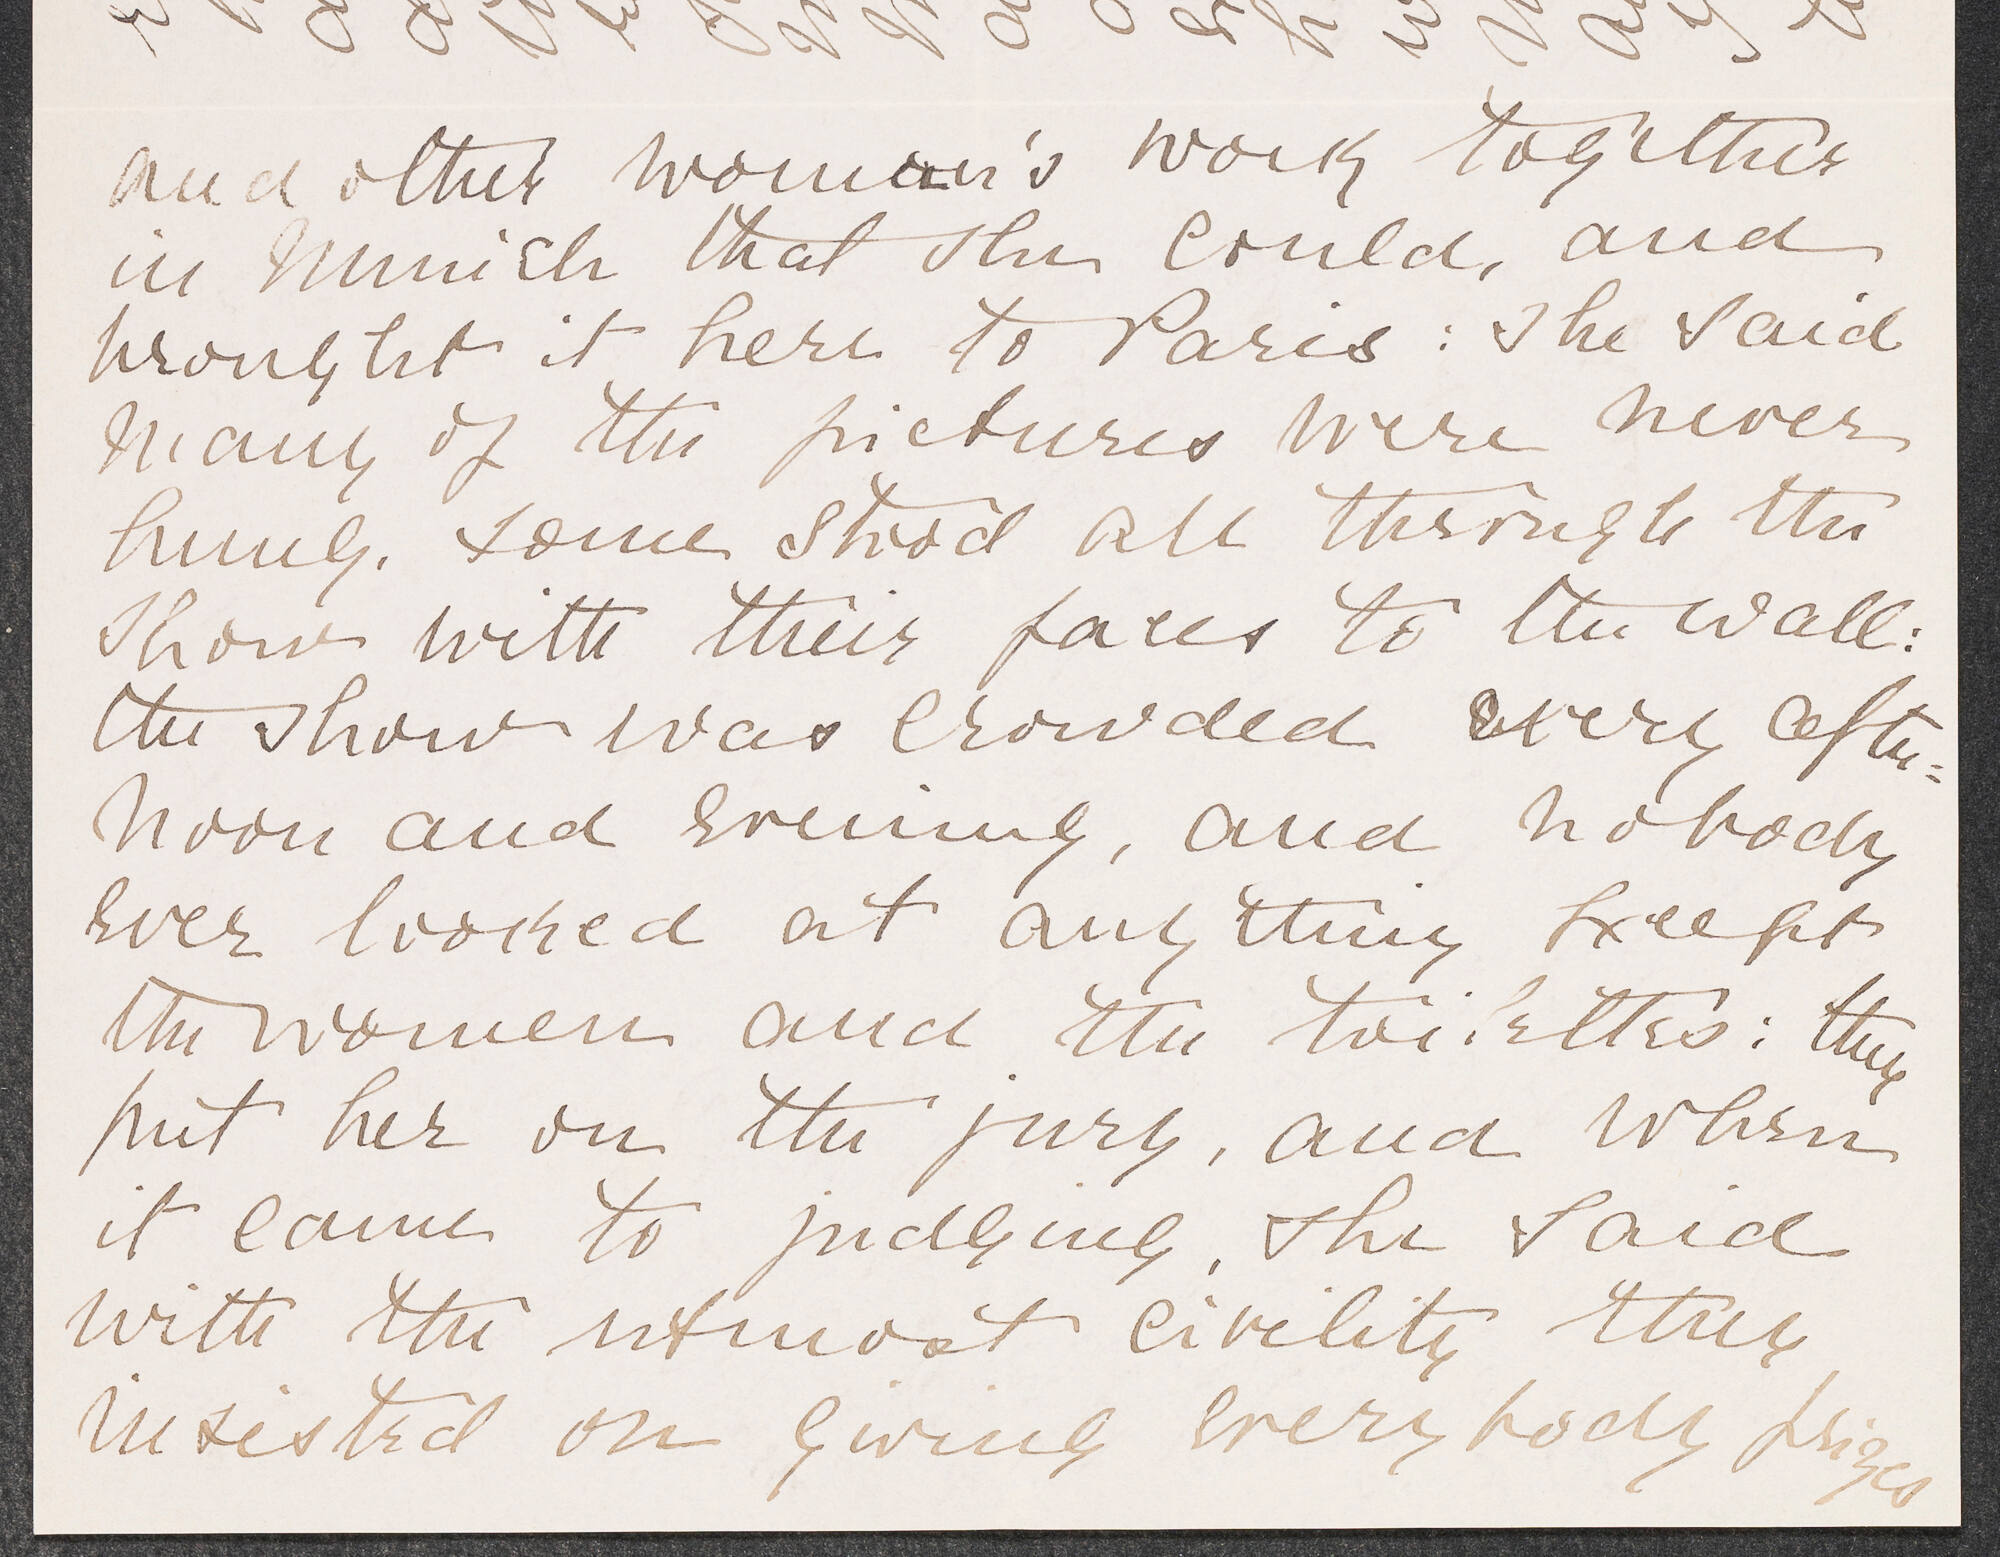 and other woman's work together
in Munich that she could, and
brought it here to Paris: she said
many of the pictures were never
hung. some stood all through the
show with their faces to the wall:
the show was crowded every after=
noon and evening, and nobody
ever looked at anything except
the women and the toilettes: they
put her on the jury, and when
it came to judging, she said
with the utmost civility they
insisted on giving everybody prizes